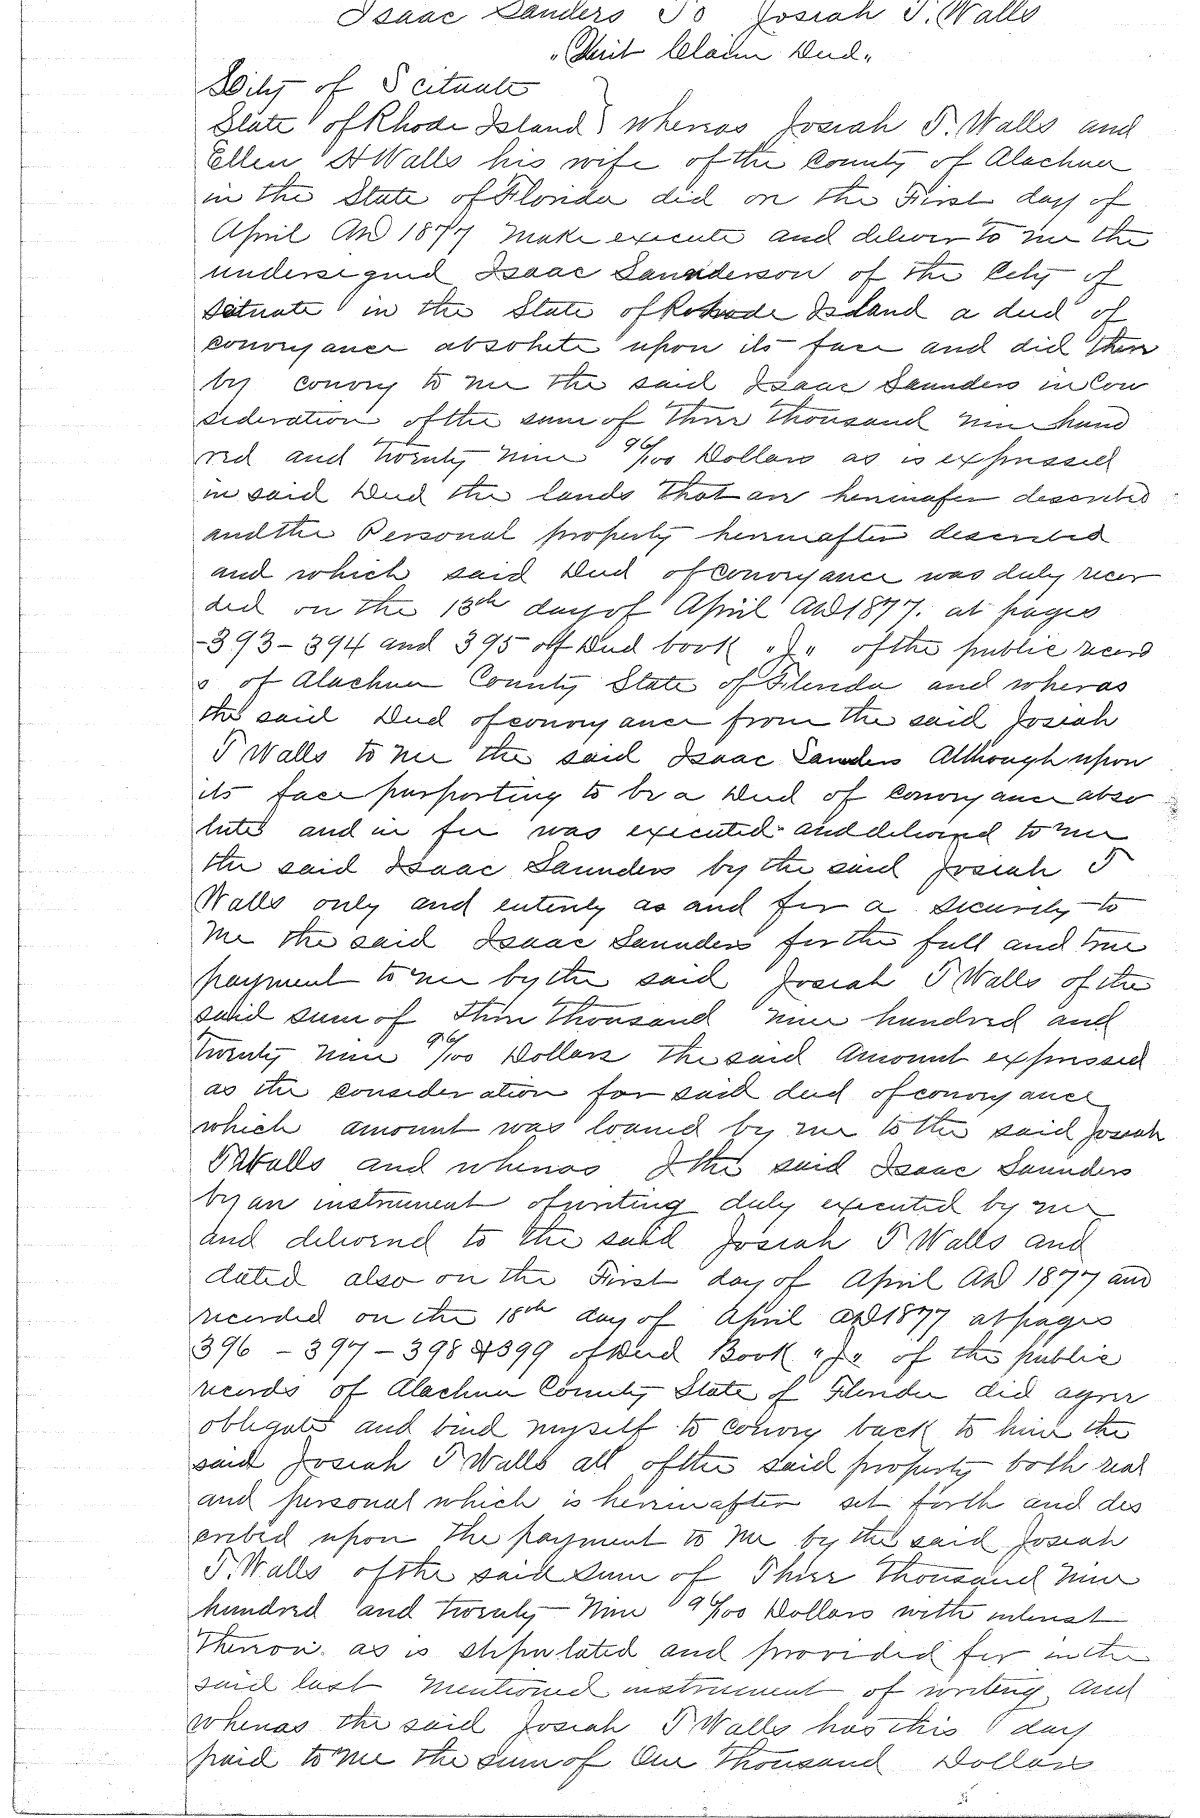 Isaac Sanders To Josiah T. Walls
"Quit Claim Deed"
City of Scituate
State of Rhode Island } Whereas Josiah T. Walls and
Ellen H Walls his wife of the County of Alachua
in the State of Florida did on the First day of
April AD 1877 make execute and deliver to me the
undersigned Isaac Saunderson of the City of
Scituate in the State of Rohode Island a deed of
conveyance absolute upon its face and did there
by convey to me the said Isaac Saunders in Con
sideration of the sum of Three Thousand nine hund
red and Twenty nine 96/100 Dollars as is expressed
in said Deed the lands that are hereinafer described
and the Personal property hereinafter described
and which said Deed of Conveyance was duly recor
ded on the 18th day of April AD 1877. at pages
-393-394 and 395 off Deed book "J" of the public record
s of Alachua County State of Florida and wheras
the said Deed of conveyance from the said Josiah
T Walls to me the said Isaac Sanders Although upon
its face purporting to be a Deed of Conveyance abso
lute and in fee was executed and delivered to me
the said Isaac Saunders by the said Josiah T
Walls only and entirely as and for a security to
me the said Isaac Saunders for the full and true
payment to me by the said Josiah T Walls of the
said sum of Three Thousand nine hundred and
Twenty nine 96/100 Dollars the said Amount expressed
as the consideration for said deed of conveyance
which amount was loaned by me to the said Josiah
T Walls and whereas I the said Isaac Saunders
by an instrument of writing duly executed by me
and delivered to the said Josiah T Walls and
dated also on the First day of April AD 1877 and
recorded on the 18th day of April AD 1877 at pages
396 - 397 - 398 & 399 of Deed Book "J" of the public
records of Alachua County State of Florida did agree
obligate and bind myself to convey back to him the
said Josiah T Walls all of the said property both real
and personal which is hereinafter set forth and des
cribed upon the payment to me by the said Josiah
T. Walls of the said sum of Three Thousand Nine
hundred and twenty Nine 96/100 Dollars with interest
Thereon as is stipulated and provided for in the
said last mentioned instrument of writing and
whereas the said Josiah T Walls has this day
paid to me the sum of One Thousand Dollars